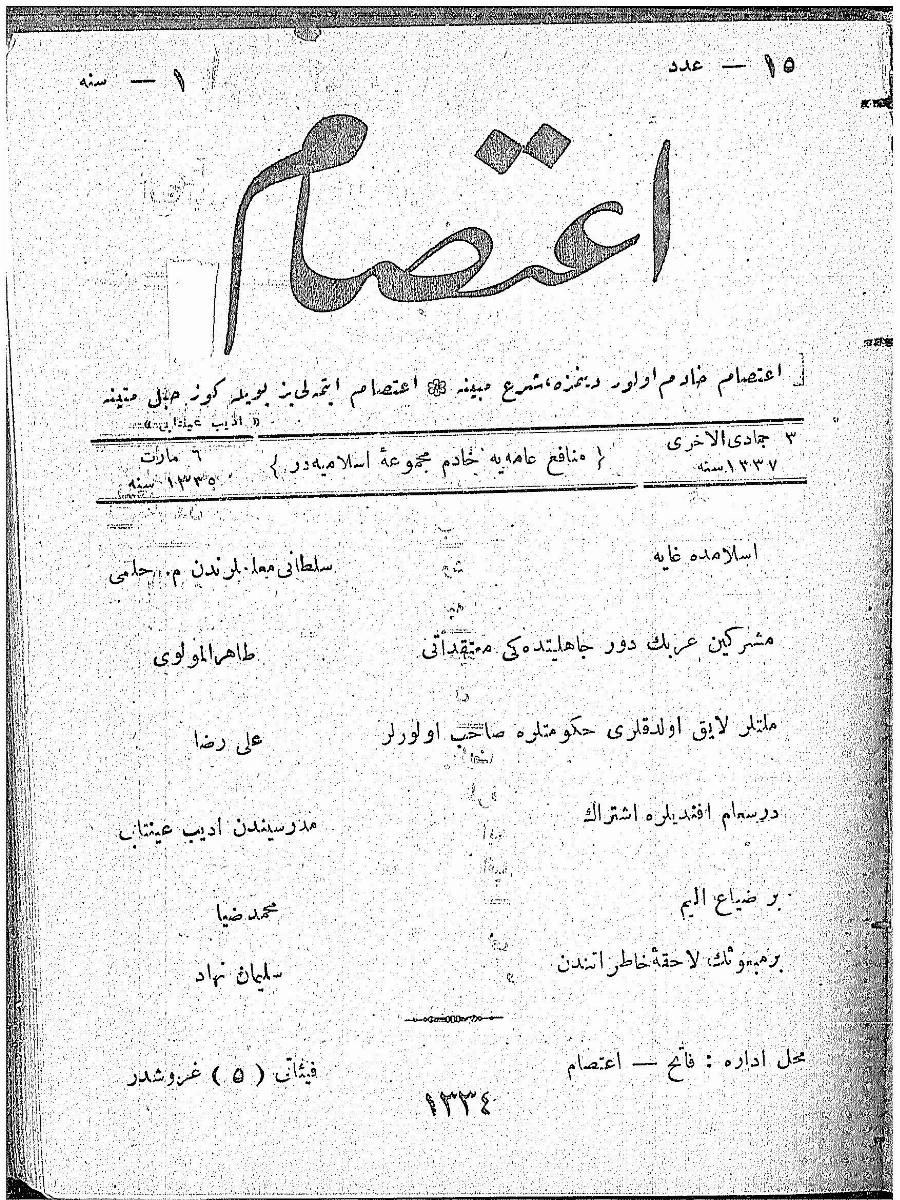 ١٥ — عدد
١ — سنه
اعتصام
اعتصام خادم اولور دينمزه، شرع مبينه ❁ اعتصام ايتمه‌لى‌يز بويله كوزل حبل متينه
« اديب عينتابى »
٣ جمادى الاخرى
١٣٣٧ سنه
{ منافع عامه‌يه خادم مجموعهٔ اسلاميه‌در }
٦ مارت
١٣٣٥ سنه
اسلامده غايه
سلطانى معلملرندن م. حلمى
مشركين عربك دور جاهليتده‌كى معتقداتى
طاهر المولوى
ملتلر لايق اولدقلرى حكومتلره صاحب اولورلر
على رضا
درسعام افنديلره اشتراك
مدرسيندن اديب عينتاب
بر ضياع اليم
محمد ضيا
برمبعوثك لاحقهٔ خاطراتندن
سليمان نهاد
محل اداره : فاتح — اعتصام
فيئاتى ( ٥ ) غروشدر
١٣٣٤